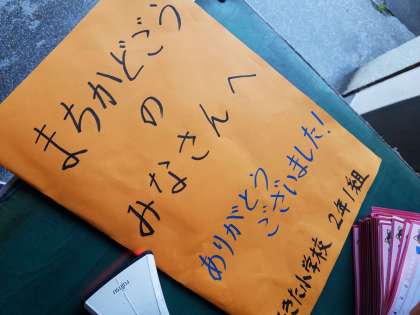 まちかどごう
の
みなさんへ
ありがとう
ございました!
きた小学校 2年1組
FUJITSU